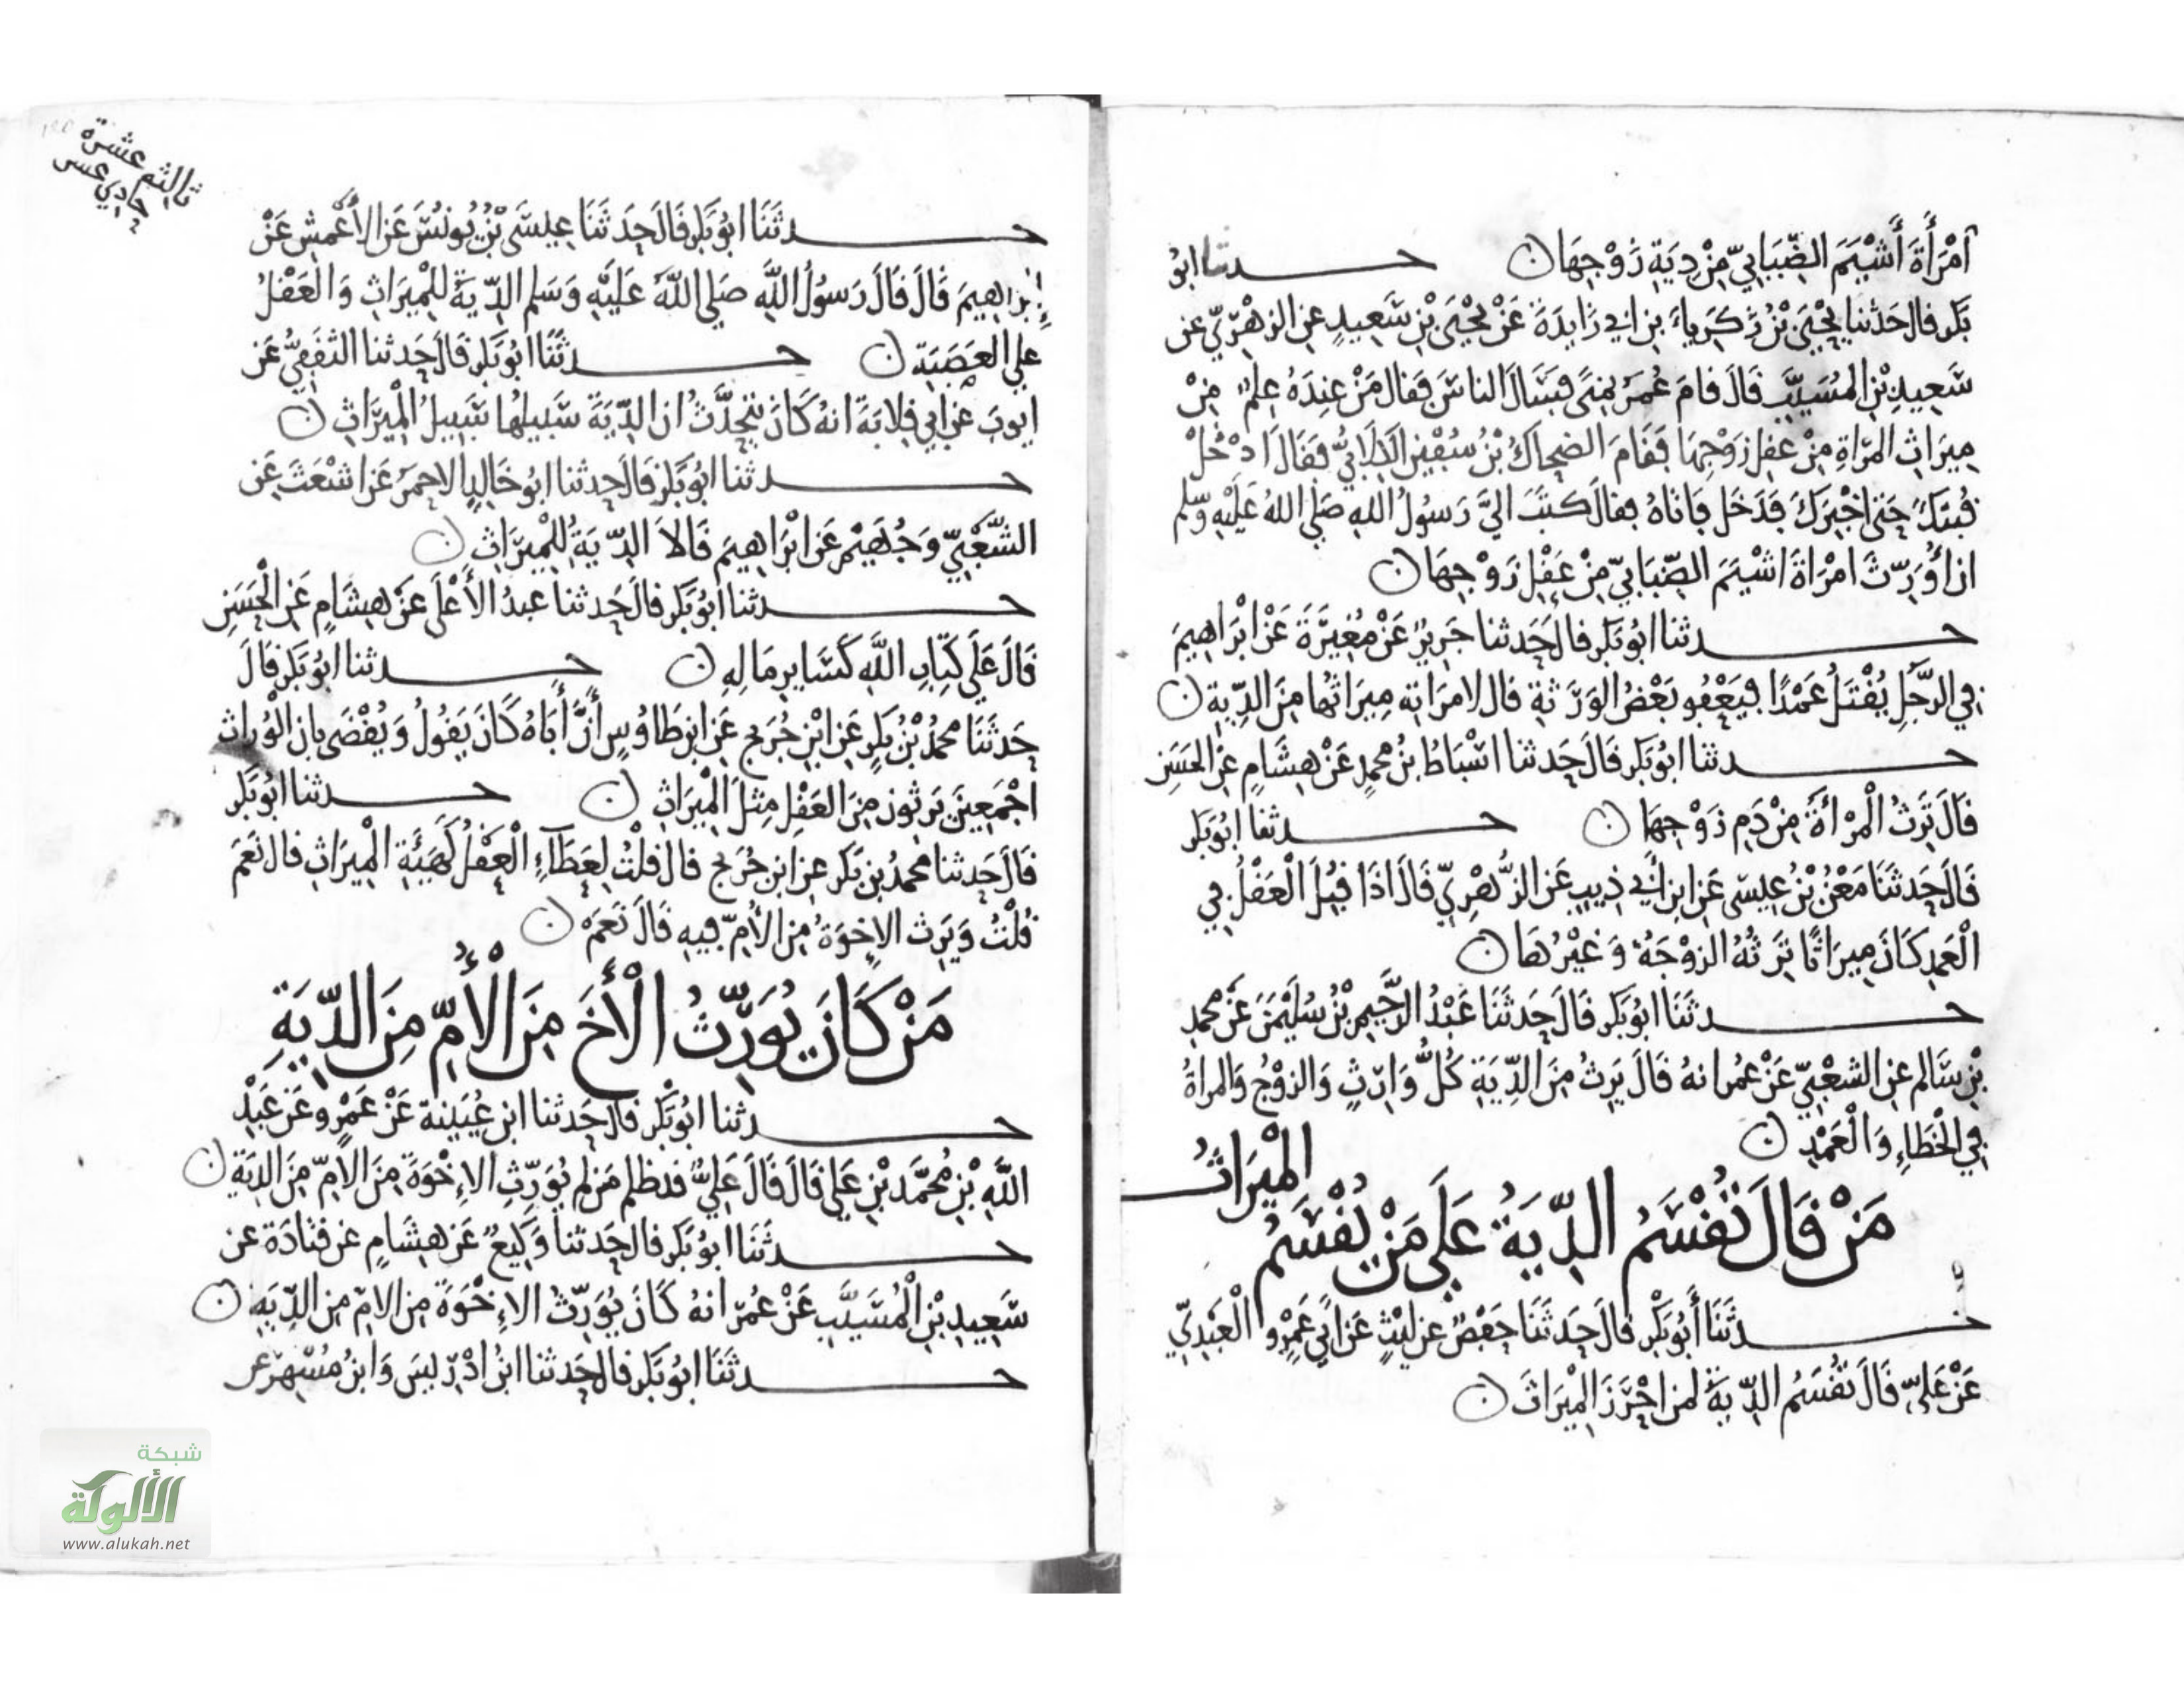 امْرَأَةَ أَشْيَمَ الضِّبَابِيِّ مِنْ دِيَةِ زَوْجِهَا ن حـــدثنا ابُو
بَكر قال حَدثنا يَحْيَى بْنُ زَكَرِياءَ بن ابي زَايدَةَ عَنْ يَحْيَى بْنِ سَعِيدٍ عن الزهْرِيّ عن
سَعِيدِ بْنِ المُسَيِّبِ قَالَ قامَ عُمَرُ بمِنًى فسَأَلَ الناسَ فقال مَنْ عِندَهُ عِلم مِنْ
مِيرَاثِ المرْاةِ مِنْ عقل زَوْجِهَا فقَامَ الضحاكُ بْنُ سُفْين الكِلَابِيُّ فقَالَ ادْخُلْ
قُبتَكَ حَتى اخْبِرَكَ فدَخَل فاتاهُ فقال كتَبَ اليَّ رَسولُ الله صَلى اللهُ عَلَيْهِ وَسَلم
ان أُوَرِّثَ امْرَاةَ اشْيَمَ الضِّبَابيّ مِنْ عَقْلِ زَوْجِهَا ن
حـــدثنا ابُو بَكر قال حَدثنا جَرِيرٌ عَنْ مُغِيرَةَ عَنْ ابْرَاهِيمَ
فِي الرَّجُلِ يُقْتَلُ عَمْدًا فيَعْفُو بَعْضُ الوَرَثةِ قال لامرَاتهِ مِيرَاثُها مِنَ الدِّيةِ ن
حـــدثنا ابُو بَكر قَالَ حَدثنا اسْبَاطُ بنُ محمدٍ عَنْ هِشَامٍ عنِ الحَسَن
قَالَ تَرِثُ الْمرْأةُ مِنْ دَمِ زَوْجِهَا ن حـــدثنا ابُو بَكر
قَالَ حَدثنَا مَعْنُ بْنُ عِيسَى عَنِ ابن أبي ذِيبٍ عَن الزُّهْرِيّ قَالَ اذَا قُبِلَ الْعَقْلُ فِي
الْعَمدِ كَانَ مِيرَاثًا تَرِثُهُ الزوْجَةُ وَغَيْرُهَا ن
حـــدثَنَا ابُو بَكر قَالَ حَدثَنَا عَبْدُ الرَّحِيمِ بْنُ سُلَيْمَن عَنْ محمدِ
بْنِ سَالم عنِ الشعْبِيّ عَنْ عُمر انهُ قَالَ يَرِثُ مِنَ الدِّيَةِ كُلُّ وَارِثٍ وَالزوْجُ وَالمراةُ
فِي الْخَطَاءِ وَالْعَمْدِ ن
مَنْ قَالَ تُقْسَمُ الدِّيَةُ عَلَى مَنْ يُقْسَمُ الْمِيرَاثُ
حـــدثَنَا أَبُو بَكْر قَالَ حَدثَنَا حَفْصٌ عن لَيْثٍ عَن أبي عَمْرٍو الْعَبْدِيّ
عَنْ عَليّ قَالَ تُقْسَمُ الدِّيةُ لمن احْرَزَ الْمِيرَاثَ ن
ثالث عشرة
حادي عشر
حـــدثَنَا ابُو بَكر قَالَ حَدثَنَا عِيسَى بْنُ يُونُسَ عَن الأَعْمَشِ عَنْ
إِبرَاهِيمَ قَالَ قَالَ رَسُولُ اللَّهِ صَلى اللَّهُ عَلَيْهِ وَسَلم الدِّيَةُ لِلْمِيرَاثِ وَالْعَقْلُ
على العَصَبَةِ ن حـــدثَنَا ابُو بَكر قَالَ حَدثنا الثقَفِيُّ عَن
ايوبَ عن ابي قِلابَةَ انهُ كَانَ يتحَدَّثُ ان الدِّيَةَ سَبيلهُا سَبِيلُ الْمِيرَاثِ ن
حـــدثنا ابُو بَكر قَالَ حدثنا ابُو خَالِدٍ الاحمَر عَن اشْعَثَ عَنِ
الشَّعْبِيّ وَجُهَيْمٍ عَن ابْرَاهِيمَ قَالاَ الدِّيَةُ لِلْمِيرَاثِ ن
حـــدثنا ابُو بَكر قالَ حَدثنا عبدُ الأَعْلَى عَنْ هِشَامٍ عَنِ الْحَسَنِ
قَالَ عَلَى كِتَابِ اللَّهِ كَسَايرِ مَالِهِ ن حـــدثنا ابُو بَكر قَالَ
حَدثنَا محمدُ بْنُ بَكرٍ عَنِ ابْنِ جُرَيج عَنِ ابن طَاوُسٍ أَنَّ أَبَاهُ كَانَ يَقُولُ وَيُقْضَى بان الْوُرَاث
اجْمَعِينَ يَرِثون مِنَ العَقْلِ مِثلَ الْمِيرَاثِ ن حـــدثنا ابُو بَكر
قَالَ حَدثنا محمدُ بن بَكر عن ابن جُرَيج قال قلْتُ لِعَطَآءٍ الْعَقْلُ كَهَيْئَةِ الْمِيرَاثِ قال نَعَم
قُلْتُ وَيَرِث الإِخوَةُ مِن الأُمّ فِيهِ قَالَ نَعَم ن
مَنْ كَانَ يُوَرِّثُ الْأَخَ مِنَ الْأُمِّ مِنَ الدِّيَةِ
حـــدثنا ابُو بَكْر قَالَ حَدثنا ابن عُيَينة عَنْ عَمْرٍو عَن عَبْدِ
اللَّهِ بْنِ مُحمَّد بْنِ عَلي قَالَ قَالَ عَلِيٌّ قد ظلم مَن لم يُوَرِّثِ الإِخْوَةَ مِنَ الأمّ مِنَ الديَةِ ن
حـــدثَنَا ابُو بَكر قال حَدثنا وَكِيعٌ عَن هِشَامٍ عَن قتَادَة عن
سَعِيدِ بْنِ الْمُسَيَّبِ عَنْ عُمَر انهُ كَانَ يُوَرِّثُ الإِخْوَةَ مِن الامّ مِن الدِّيَةِ ن
حـــدثَنَا ابُو بَكر قالَ حَدثنا ابنُ ادْرِيسَ وَابنُ مُسْهِرٍ عن
شبكة
الألوكة
www.alukah.net